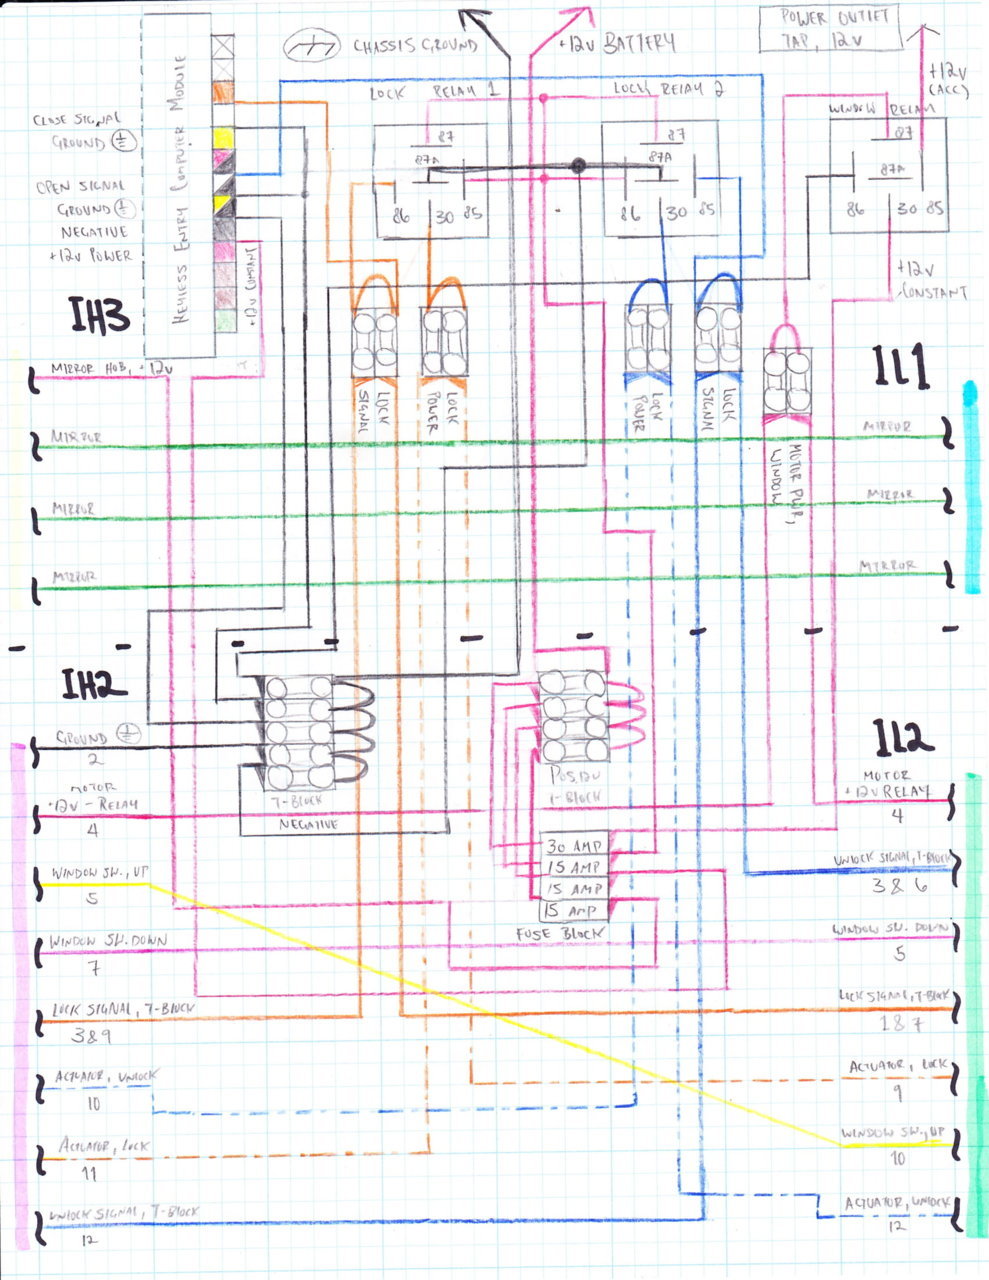 POWER OUTLET
TAP, 12V
CHASSIS GROUND
+12V BATTERY
+12V
(ACC)
KEYLESS ENTRY COMPUTER MODULE
LOCK RELAY 1
LOCK RELAY 2
WINDOW RELAY
CLOSE SIGNAL
GROUND
OPEN SIGNAL
GROUND
NEGATIVE
+12V POWER
87
87A
86 30 85
87
87A
86 30 85
87
87A
86 30 85
+12V
CONSTANT
IH3
IL1
MIRROR HUB, +12V
LOCK
SIGNAL
LOCK
POWER
LOCK
POWER
LOCK
SIGNAL
MOTOR PWR,
WINDOW
MIRROR
MIRROR
MIRROR
MIRROR
MIRROR
MIRROR
IH2
IL2
GROUND
2
MOTOR
+12V - RELAY
4
T-BLOCK
NEGATIVE
POS, 12V
T-BLOCK
MOTOR
+12V RELAY
4
30 AMP
15 AMP
15 AMP
15 AMP
FUSE BLOCK
UNLOCK SIGNAL, T-BLOCK
3 & 6
WINDOW SW., UP
5
WINDOW SW. DOWN
7
WINDOW SW. DOWN
5
LOCK SIGNAL, T-BLOCK
3&9
LOCK SIGNAL, T-BLOCK
1&7
ACTUATOR, UNLOCK
10
ACTUATOR, LOCK
9
ACTUATOR, LOCK
11
WINDOW SW., UP
10
UNLOCK SIGNAL, T-BLOCK
12
ACTUATOR, UNLOCK
12